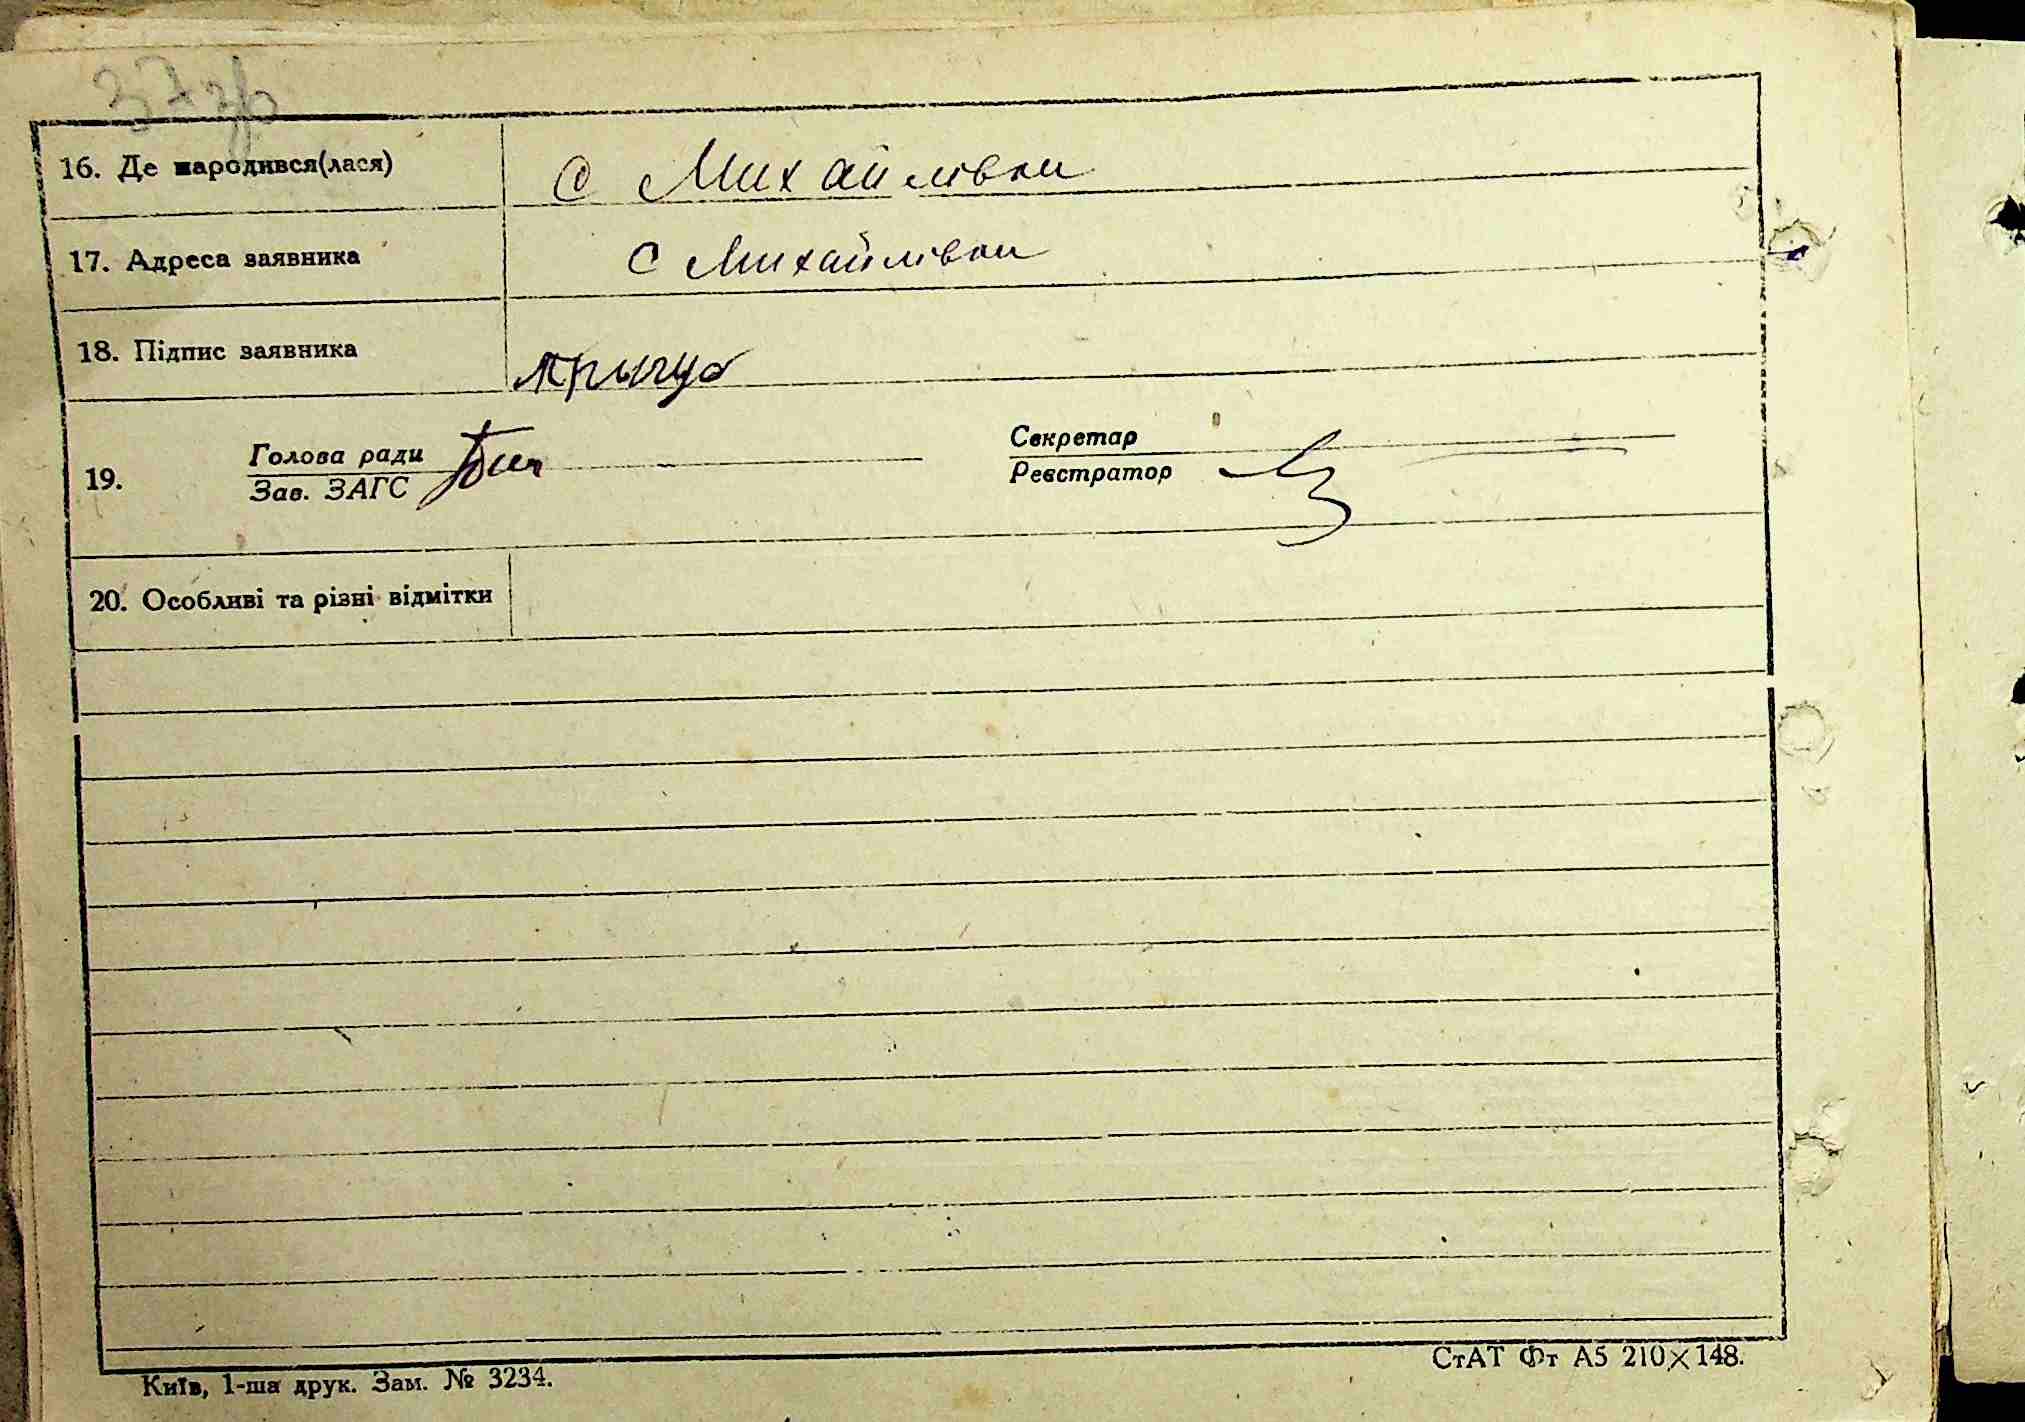 37 зр
16. Де народився(лася) с Михайлівки
17. Адреса заявника с Михайлівки
18. Підпис заявника
19. Голова ради Секретар
Зав. ЗАГС Реєстратор
20. Особливі та різні відмітки
Київ, 1-ша друк. Зам. № 3234. СтАТ Фт А5 210×148.